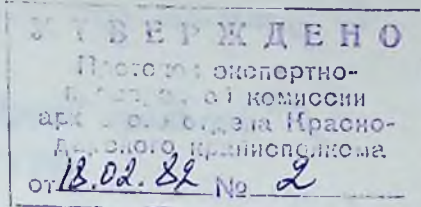 УТВЕРЖДЕНО
Протокол экспертно-
комиссии
отдела Красно-
дарского крайисполкома
от 18.02.82 № 2